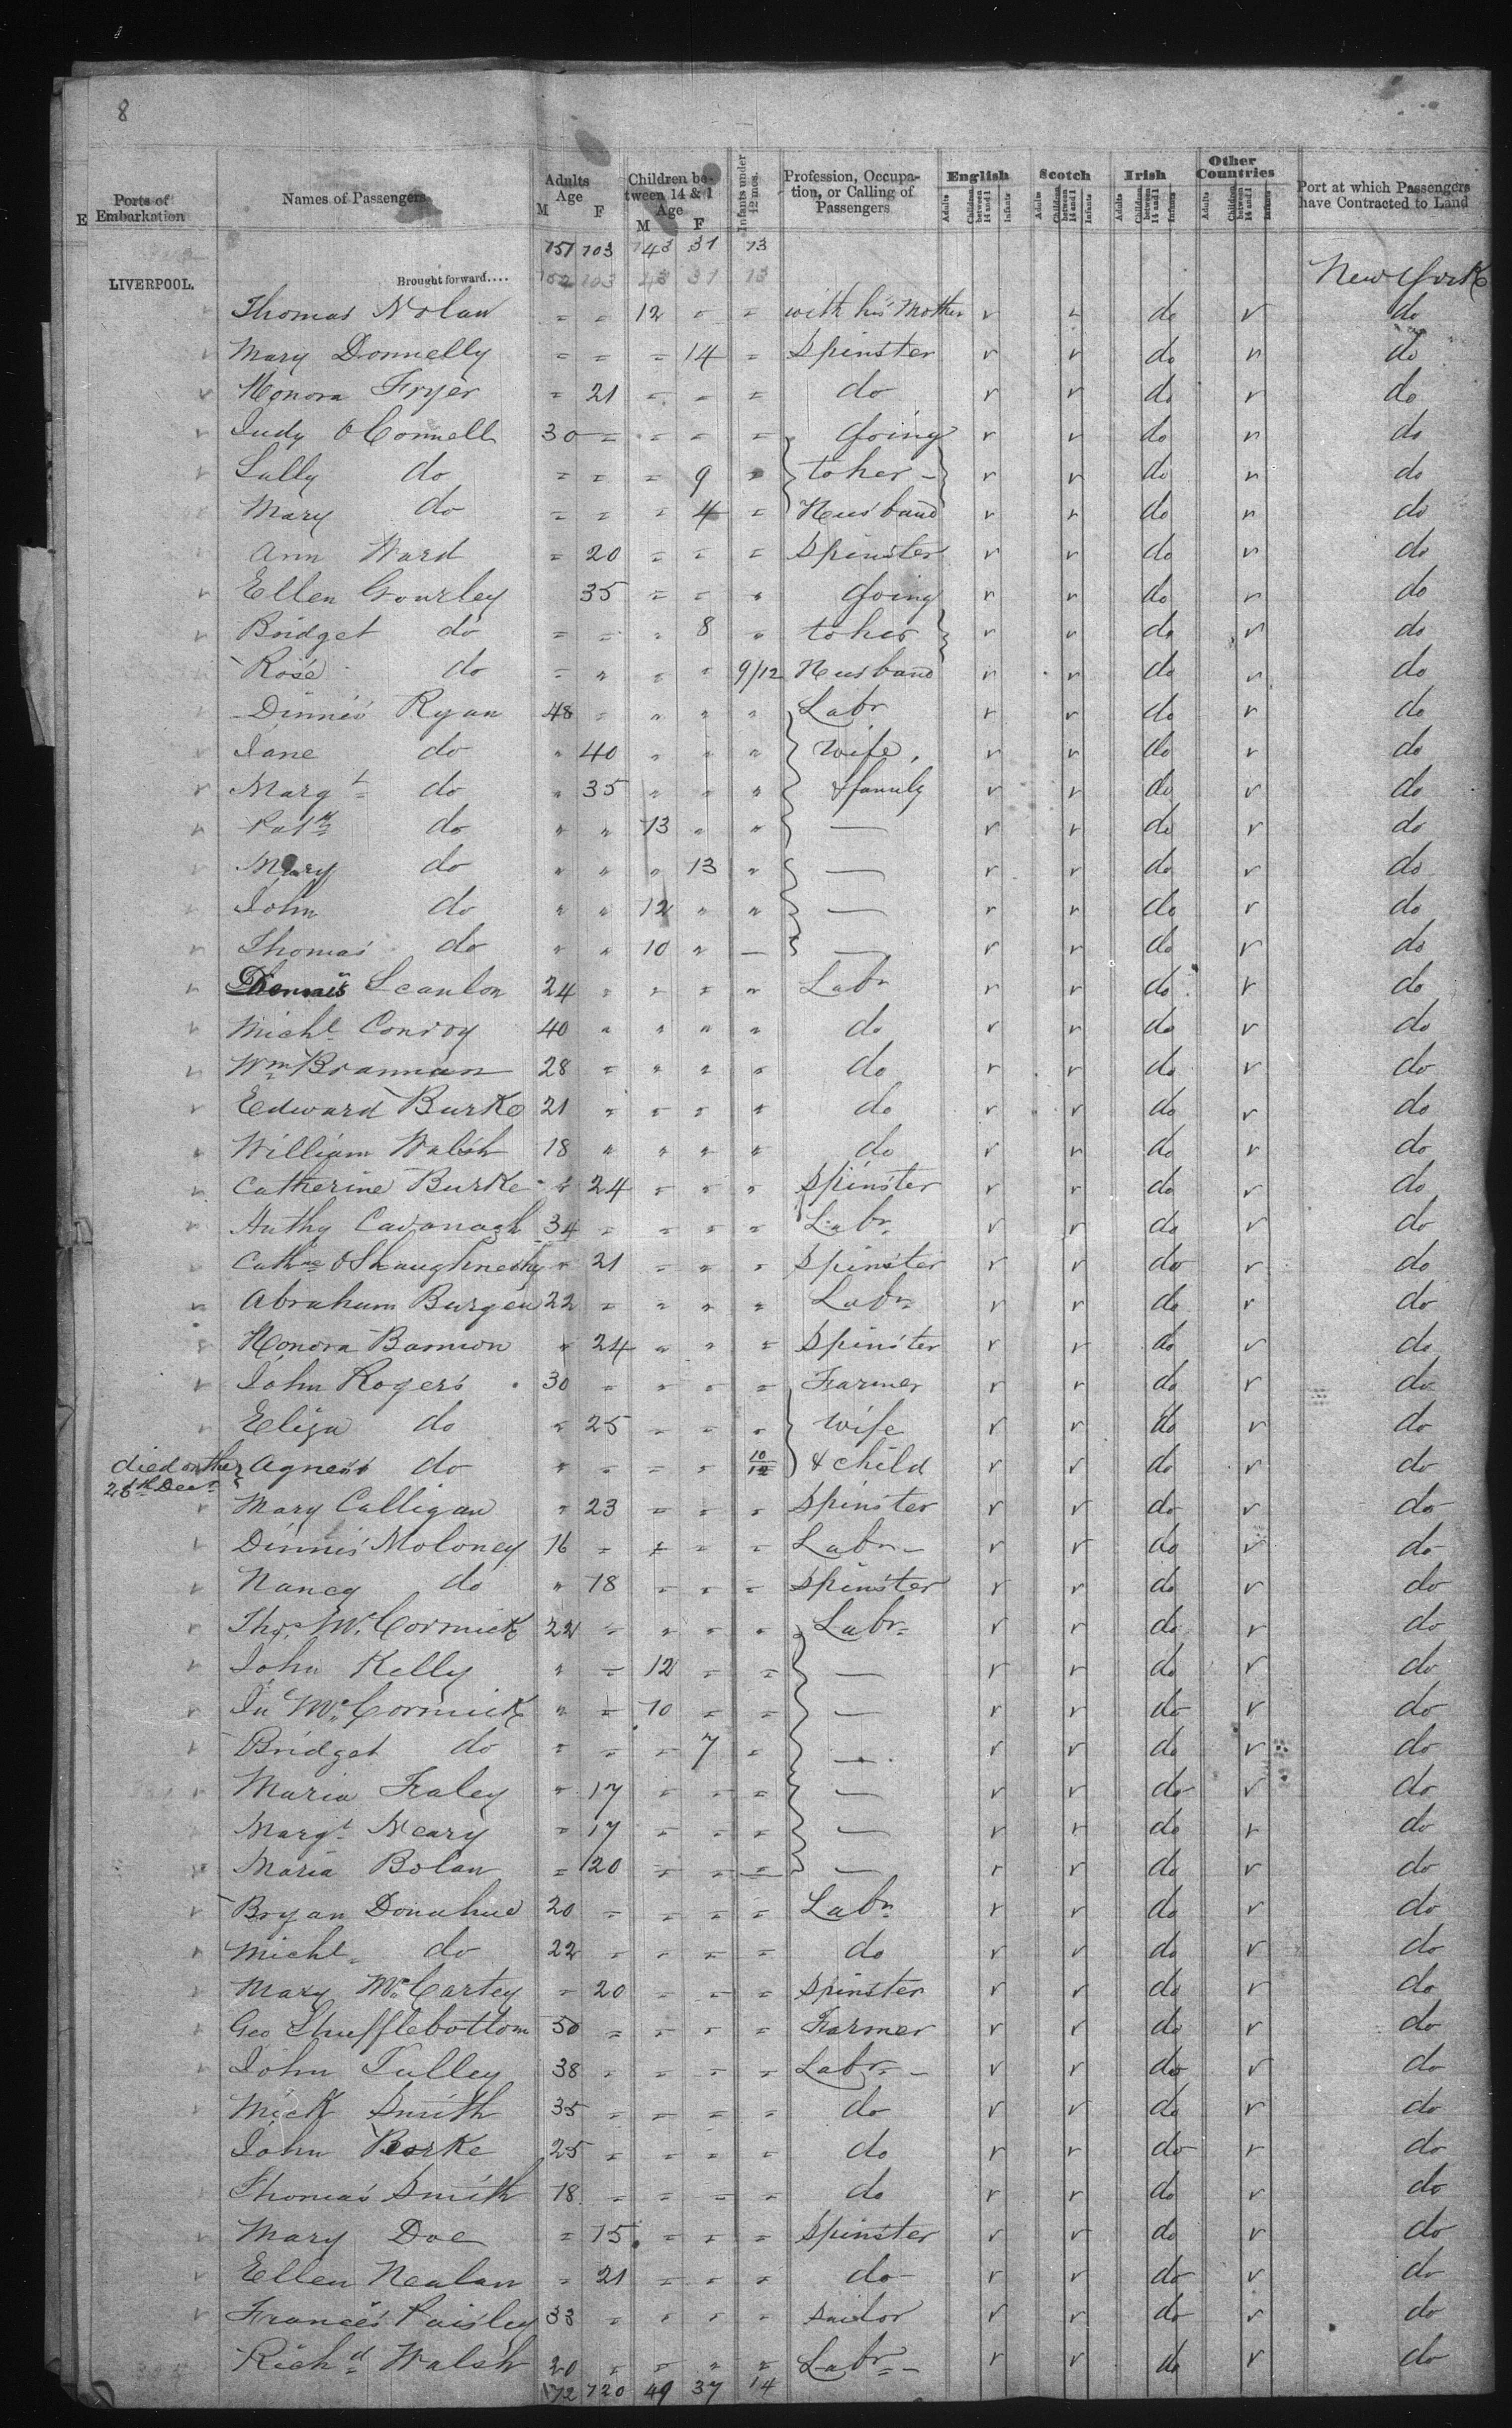 8
E Ports of Embarkation Names of Passengers Adults Age M F Children between 14 & 1 Age M F Infants under 12 mos. Profession, Occupation, or Calling of Passengers English Adults Children between 14 and 1 Infants Scotch Adults Children between 14 and 1 Infants Irish Adults Children between 14 and 1 Infants Other Countries Adults Children between 14 and 1 Infants Port at which Passengers have Contracted to Land
151 103 143 31 13
LIVERPOOL. Brought forward.... 152 103 43 31 13 New York
Thomas Nolan = = 12 = = with his Mother r r do r do
Mary Donnelly = = = 14 = Spinster r r do r do
Honora Fryer = 21 = = = do r r do r do
Judy O'Connell 30 = = = = Going r r do r do
Sally do = = = 9 = to her - r r do r do
Mary do = = = 4 = Husband r r do r do
Ann Ward = 20 = = = Spinster r r do r do
Ellen Gourley 35 = = " Going r r do r do
Bridget do = = " 8 " to her r r do r do
Rose do = " = " 9/12 Husband r r do r do
Dinnis Ryan 48 = " " " Labr r r do r do
Jane do " 40 " " " Wife, r r do r do
Margt do " 35 " " " & family r r do r do
Patk do " " 13 " " — r r do r do
Mary do " " " 13 " — r r do r do
John do " " 12 " " — r r do r do
Thomas do " " 10 " — — r r do r do
Dennis Scanlon 24 " = = " Labr r r do r do
Michl Conroy 40 " " " " do r r do r do
Wm Brannan 28 = " " " do r r do r do
Edward Burke 21 = = = " do r r do r do
William Walsh 18 " " " " do r r do r do
Catherine Burke " 24 = = " Spinster r r do r do
Anthy Cavanagh 34 = = = = Labr r r do r do
Cathne O'Shaughneshy " 21 = " = Spinster r r do r do
Abraham Burgen 22 = = " " Labr r r do r do
Honora Bannon " 24 " " = Spinster r r do r do
John Rogers 30 = = = = Farmer r r do r do
Eliza do " 25 = = " Wife r r do r do
died on the 26th Decr Agness do " = = " 10/12 & child r r do r do
Mary Calligan = 23 = = = Spinster r r do r do
Dinnis Moloney 16 = = = = Labr - r r do r do
Nancy do " 18 = = = Spinster r r do r do
Thos McCormick 22 = " = " Labr r r do r do
John Kelly " = 12 = = — r r do r do
Jn McCormick " = 10 = = — r r do r do
Bridget do = = = 7 = — r r do r do
Maria Faley " 17 = = = — r r do r do
Margt Neary = 17 = = = — r r do r do
Maria Bolan = 20 = = = — r r do r do
Bryan Donahue 20 = = = = Labr r r do r do
Michl do 22 = = = = do r r do r do
Mary McCartey = 20 = = = Spinster r r do r do
Geo Shufflebottom 50 = = = = Farmer r r do r do
John Tulley 38 = = = = Labr - r r do r do
Mick Smith 35 = = = = do r r do r do
John Borke 25 = = = = do r r do r do
Thomas Smith 18 = = = = do r r do r do
Mary Doe = 15 = = = Spinster r r do r do
Ellen Nealan = 21 = = = do r r do r do
Frances Paisley 33 = " = = Sailor r r do r do
Richd Walsh 20 = = " = Labr - r r do r do
172 120 49 37 14